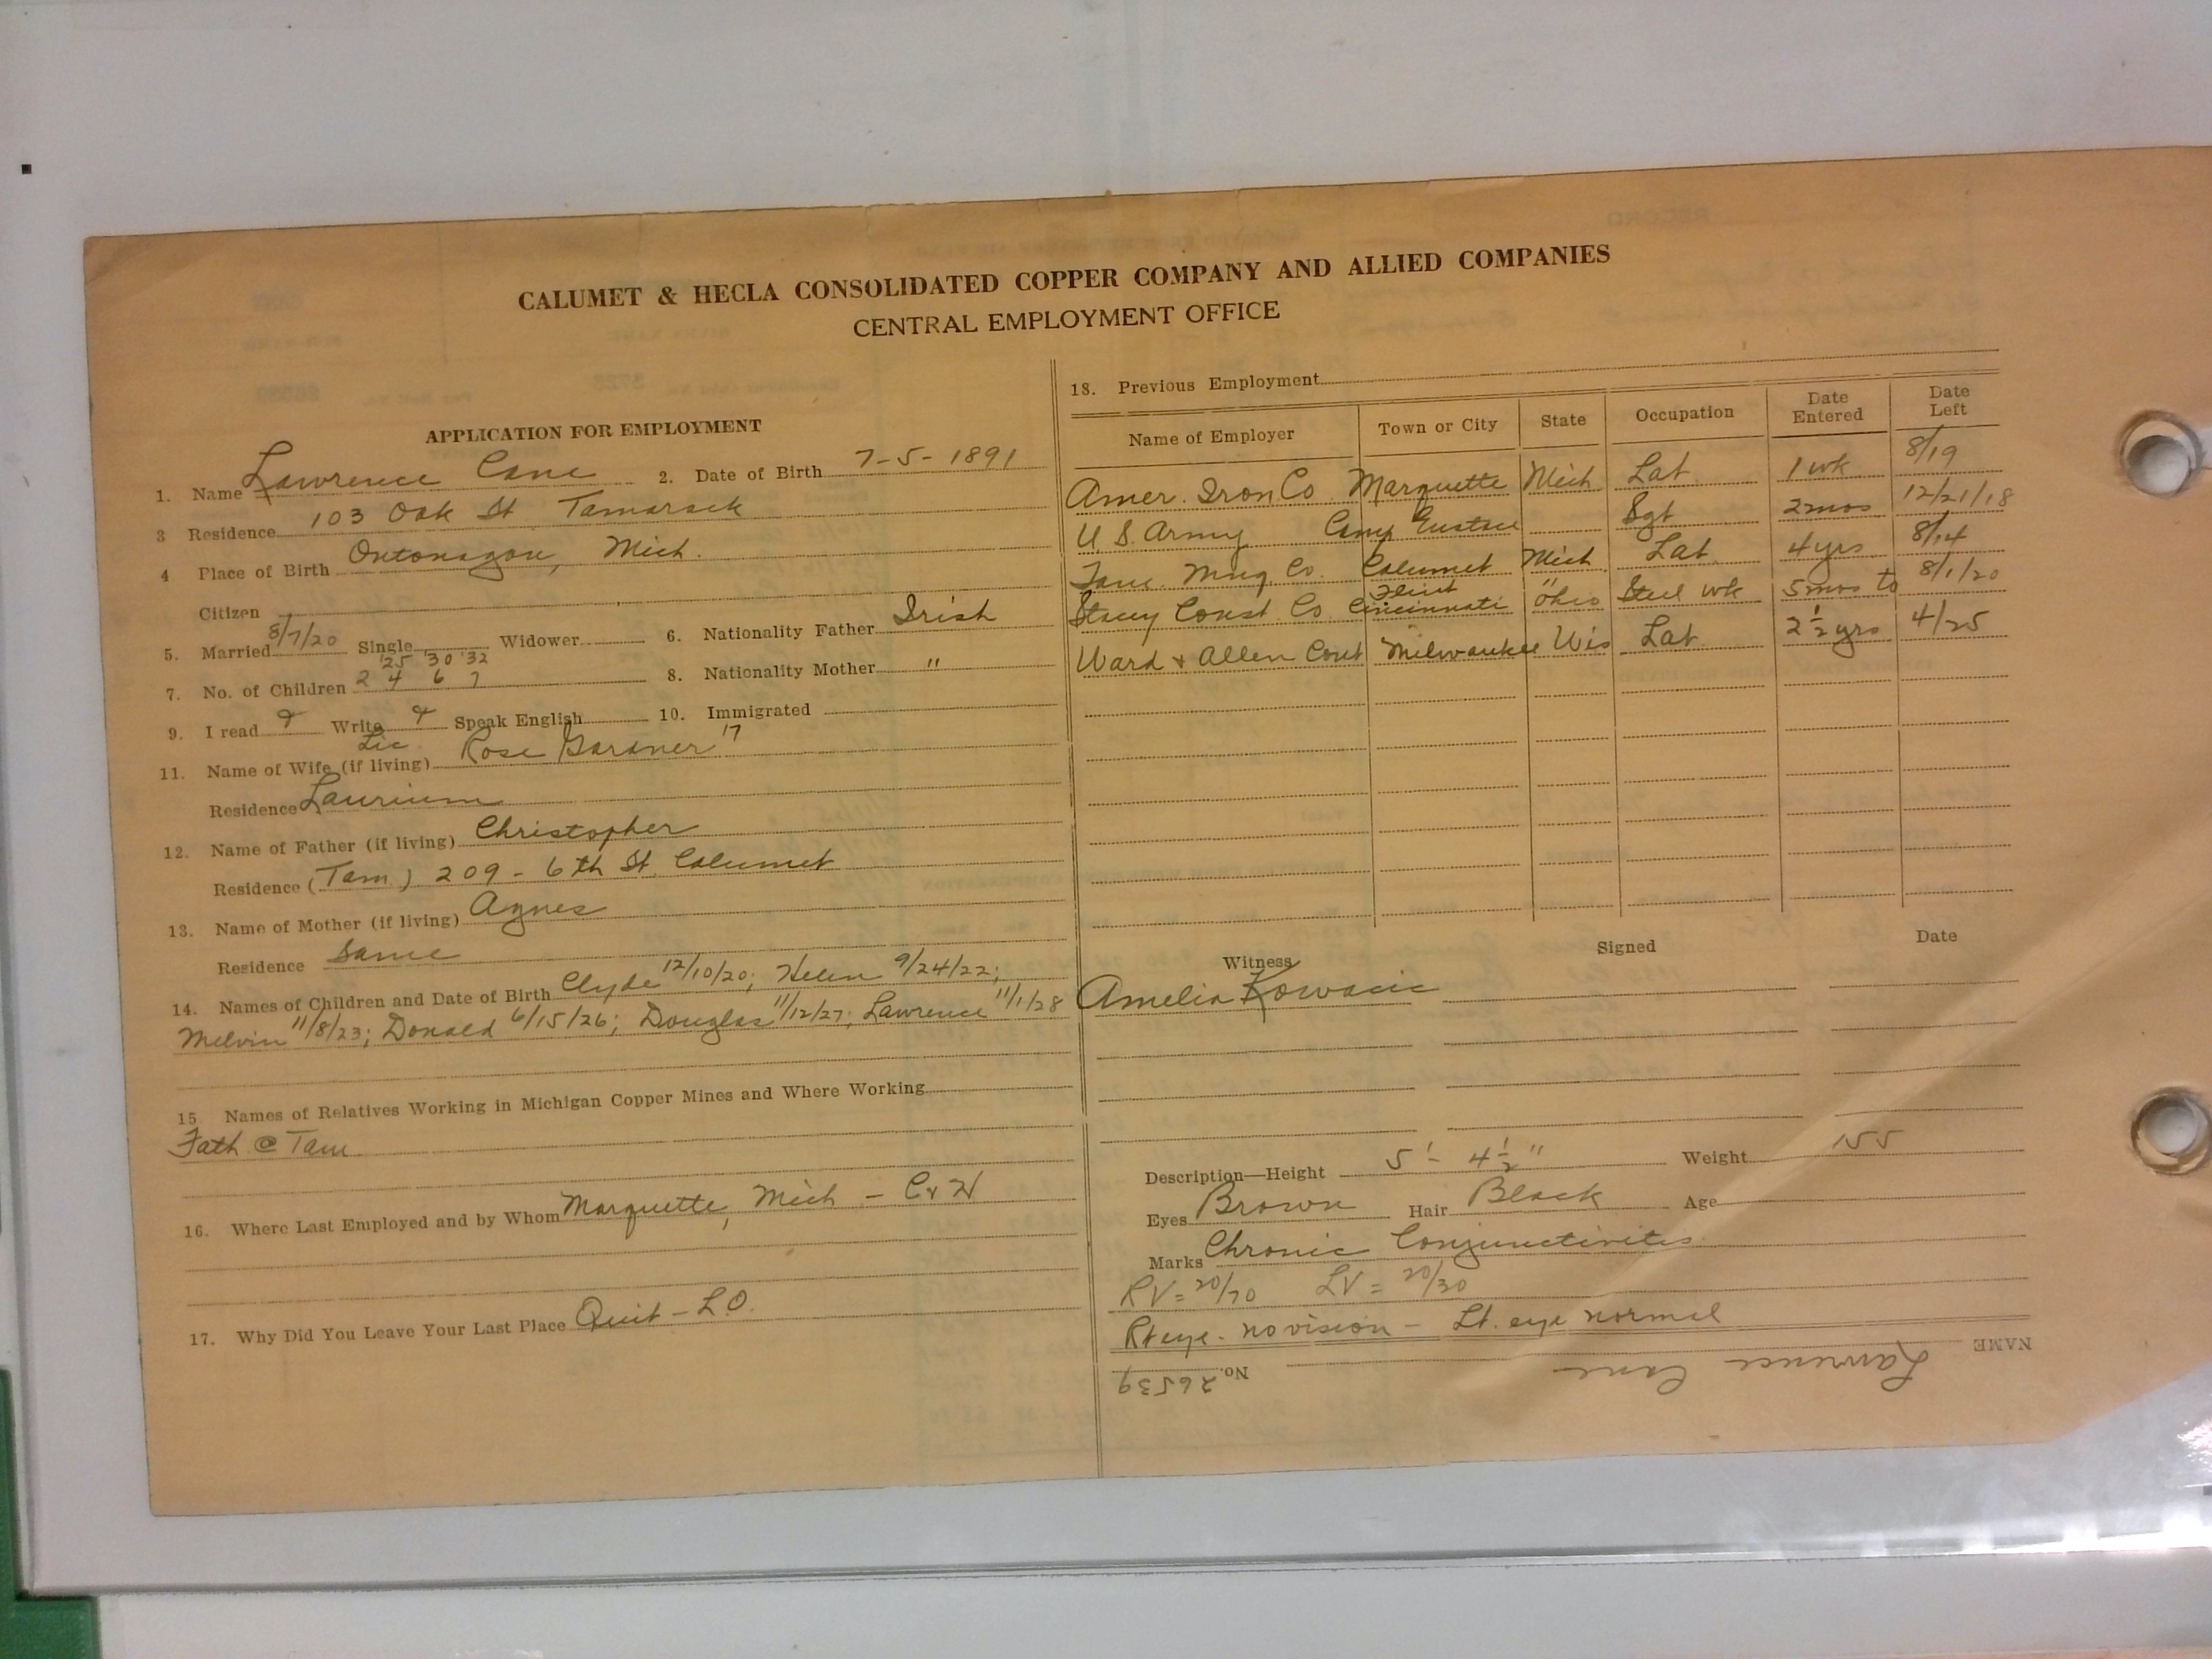 CALUMET & HECLA CONSOLIDATED COPPER COMPANY AND ALLIED COMPANIES
CENTRAL EMPLOYMENT OFFICE
APPLICATION FOR EMPLOYMENT
1. Name Lawrence Cane 2. Date of Birth 7-5-1891
3 Residence 103 Oak St Tamarack
4 Place of Birth Ontonagon, Mich.
Citizen
5. Married 8/7/20 Single Widower 6. Nationality Father Irish
'25 '30 '32
7. No. of Children 2 4 6 7 8. Nationality Mother "
9. I read Write Speak English 10. Immigrated
Lic 17
11. Name of Wife (if living) Rose Gardner
Residence Laurium
12. Name of Father (if living) Christopher
Residence (Tam) 209 - 6th St. Calumet
13. Name of Mother (if living) Agnes
Residence Same
14. Names of Children and Date of Birth Clyde 12/10/20; Helen 9/24/22;
Melvin 11/8/23; Donald 6/15/26; Douglas 11/12/27; Lawrence 11/1/28
15 Names of Relatives Working in Michigan Copper Mines and Where Working
Fath @ Tam
16. Where Last Employed and by Whom Marquette, Mich - C & H
17. Why Did You Leave Your Last Place Quit - L.O.
18. Previous Employment
Name of Employer Town or City State Occupation Date Entered Date Left
Amer. Iron Co Marquette Mich Lab 1 wk 8/19
U.S. Army Camp Sgt 2 mos 12/21/18
Mng. Co. Calumet Mich Lab 4 yrs 8/14
Flint "
Stacey Const. Co. Cincinnati Ohio Steel wk 5 mos to 8/1/20
Ward & Allen Cont Milwaukee Wis Lab 2½ yrs 4/25
Witness Signed Date
Amelia Kovacic
Description—Height 5'- 4½" Weight 155
Eyes Brown Hair Black Age
Marks Chronic Conjunctivitis
RV = 20/70 LV = 20/30
Rt eye - no vision - Lt. eye normal
NAME Lawrence Cane No. 26539